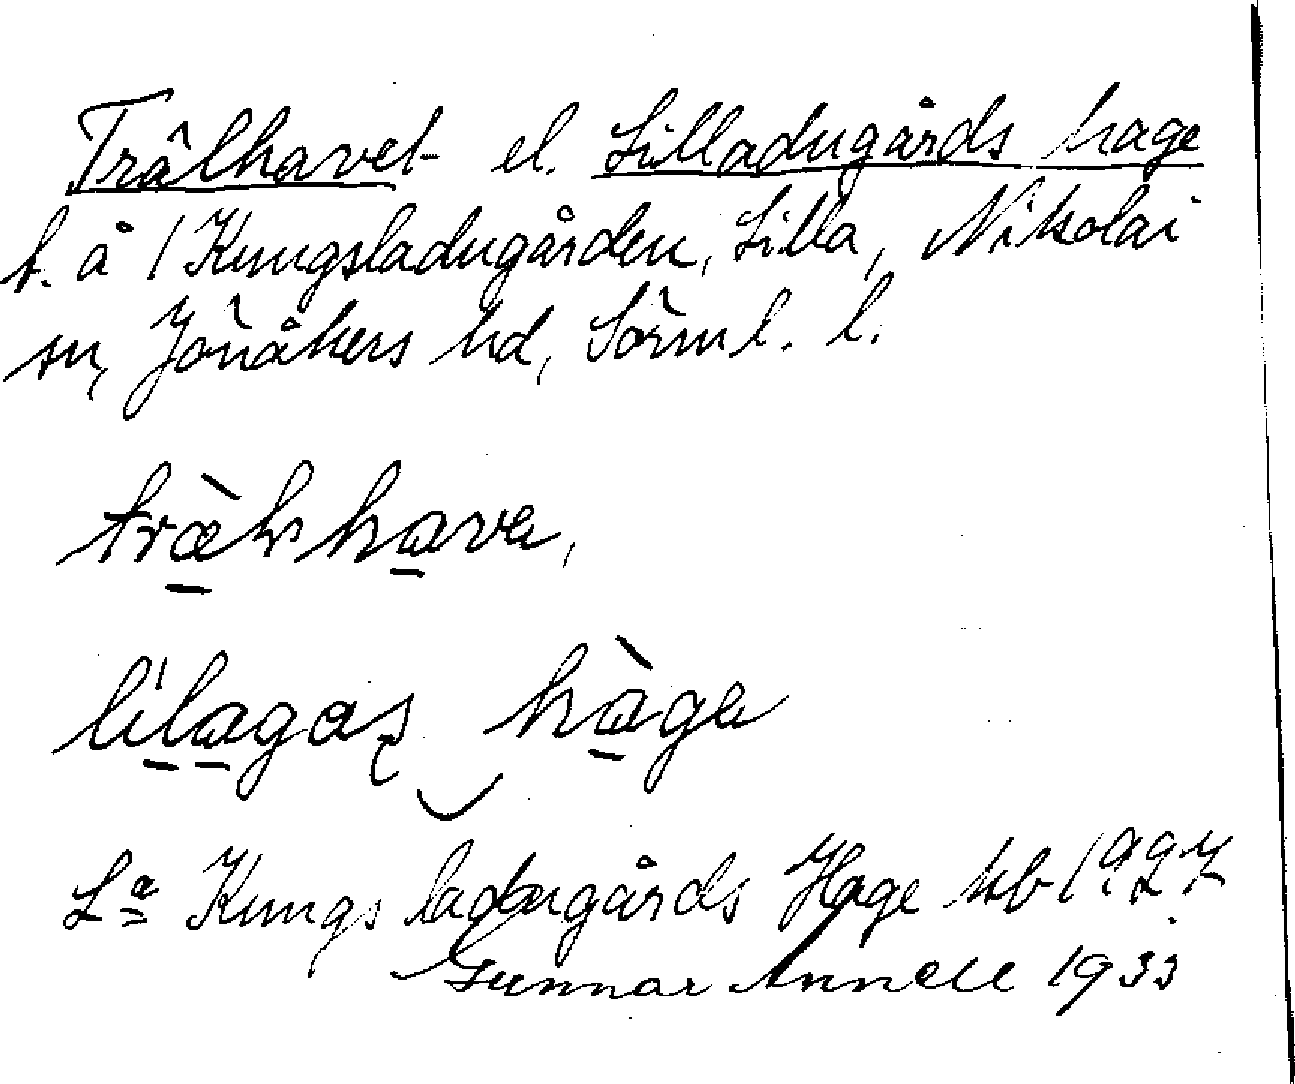 Trälhavet el. Lilladugårds hage
t. å / Kungsladugården, Lilla, Nikolai
sn, Jönåkers hd, Sörml. l.
hage
La Kungs ladugårds Hage kb 1927
Gunnar Annell 1933